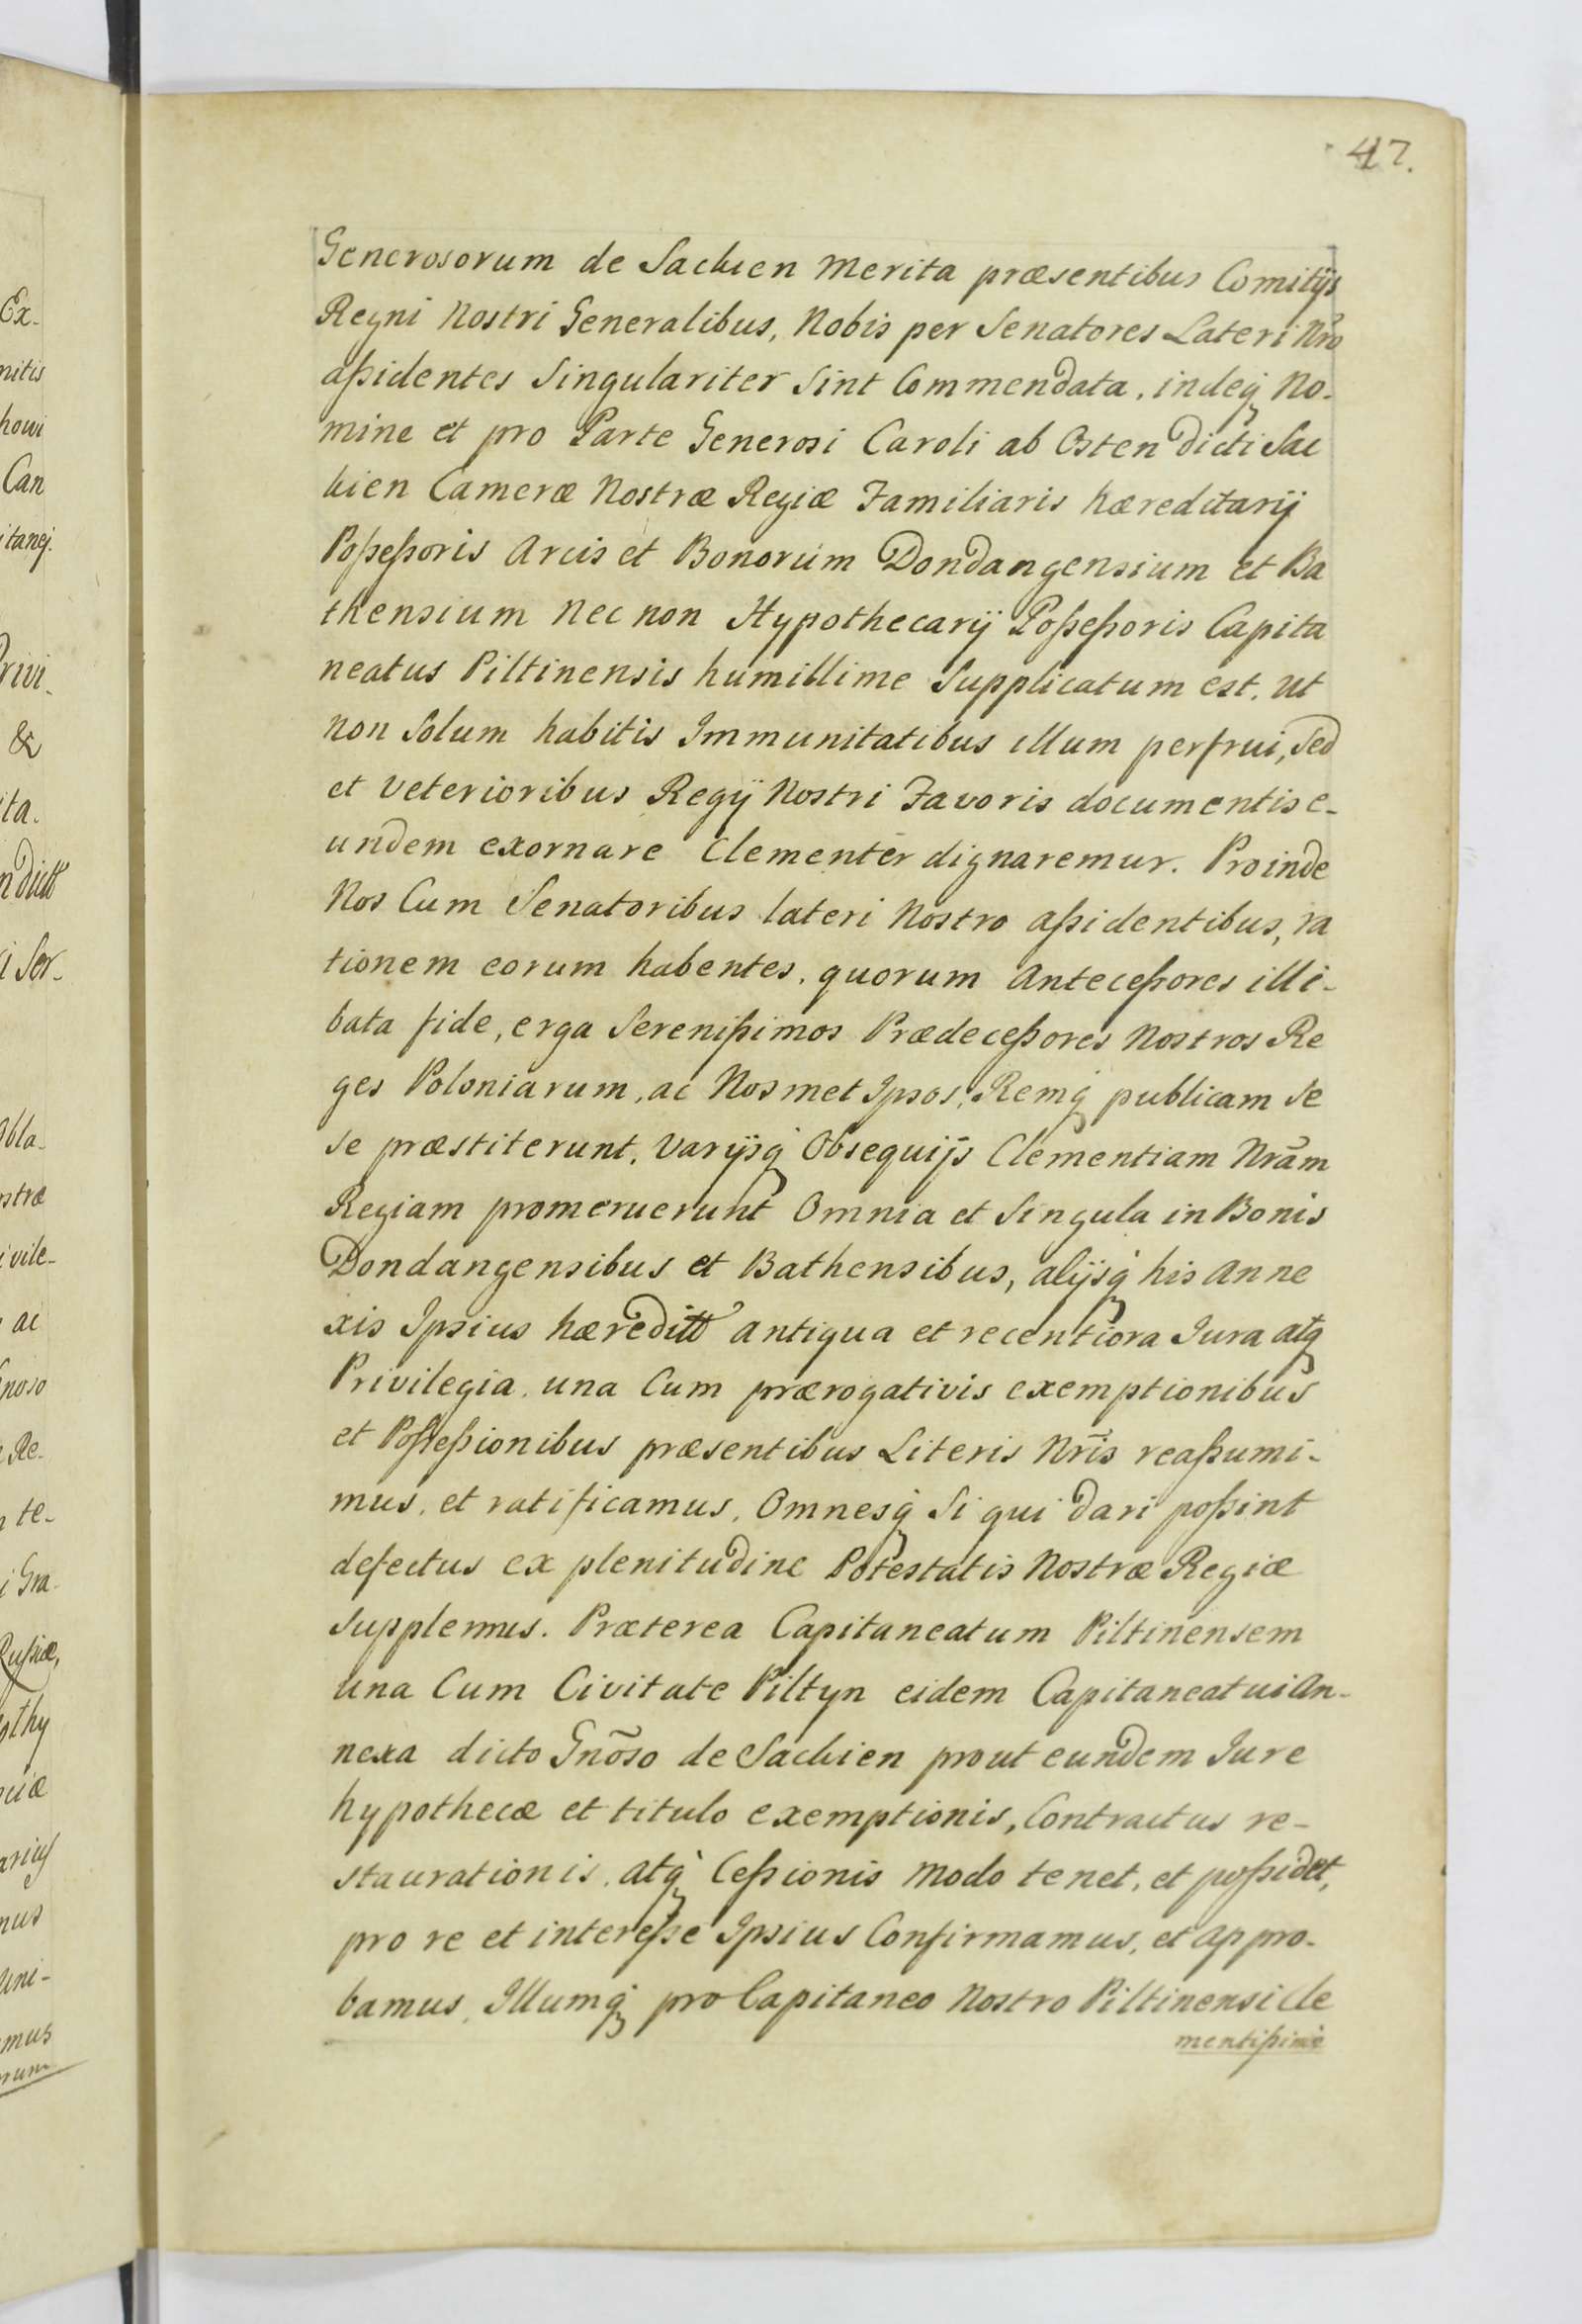 47.
Generosorum de Sacken merita præsentibus Comitijs
Regni Nostri Generalibus, Nobis per Senatores Lateri Nr̃o
aßidentes Singulariter Sint Commendata, indeq̃ No-
mine et pro Parte Generosi Caroli ab Osten dicti Sac
ken Cameræ Nostræ Regiæ Familiaris hæreditarij
Poßeßoris Arcis et Bonorum Dondangensium et Ba
thensium nec non Hypothecarij Poßeßoris Capita
neatus Piltinensis humillime Supplicatum est, ut
non Solum habitis Immunitatibus illum perfrui, Sed
et veterioribus Regij Nostri Favoris documentis e-
undem exornare Clementer dignaremur. Proinde
Nos Cum Senatoribus lateri Nostro aßidentibus, ra
tionem eorum habentes, quorum Anteceßores illi-
bata fide, erga Sereníßimos Prædeceßores Nostros Re
ges Poloniarum, ac Nosmet Ipsos, Remq̃ publicam Se
se præstiterunt, Varijsq̃ Obsequijs Clementiam Nr̃am
Regiam promeruerunt Omnia et Singula in Bonis
Dondangensibus et Bathensibus, alijsq̃ his Anne
xis Ipsius hæreditt antiqua et recentiora Jura atq̃
Privilegia, una Cum prærogativis exemptionibus
et Poßeßionibus præsentibus Literis Nr̃is reaßumi-
mus, et ratificamus, Omnesq̃ Si qui dari poßint
defectus ex plenitudine Potestatis Nostræ Regiæ
Supplemus. Præterea Capitaneatum Piltinensem
una Cum Civitate Piltyn eidem Capitaneatui An-
nexa dicto Gnõso de Sacken prout eundem Jure
hypothecæ et titulo exemptionis, Contractus re-
staurationis, atq̃ Ceßionis modo tenet, et poßidet,
pro re et intereße Ipsius Confirmamus, et appro-
bamus, Illumq̃ pro Capitaneo Nostro Piltinensi Cle
mentißime
Ex-
nitis
Can
itanej.
Privi-
&
ita-
i Ser-
Abla-
ostræ
ivile-
ac
Re-
te-
i Gra-
othy
uni-